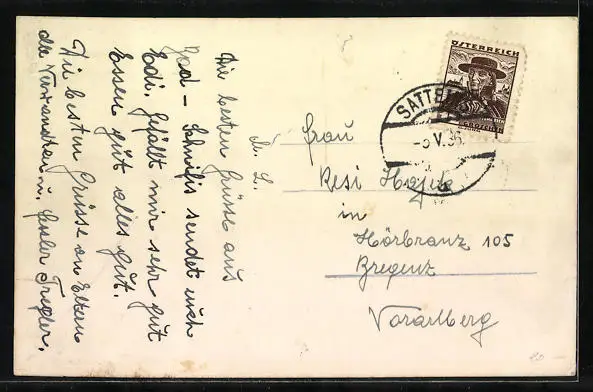 Die besten Grüsse aus
Bad - Schmifis sendet euch
Edi. Gefällt mir sehr gut
Essen gut alles gut.
Die besten Grüsse an Eltern
die Verwandten u.
ÖSTERREICH
SATTE
-5.V.36.
Frau
Resi
in
Hörbranz 105
Bregenz
Vorarlberg